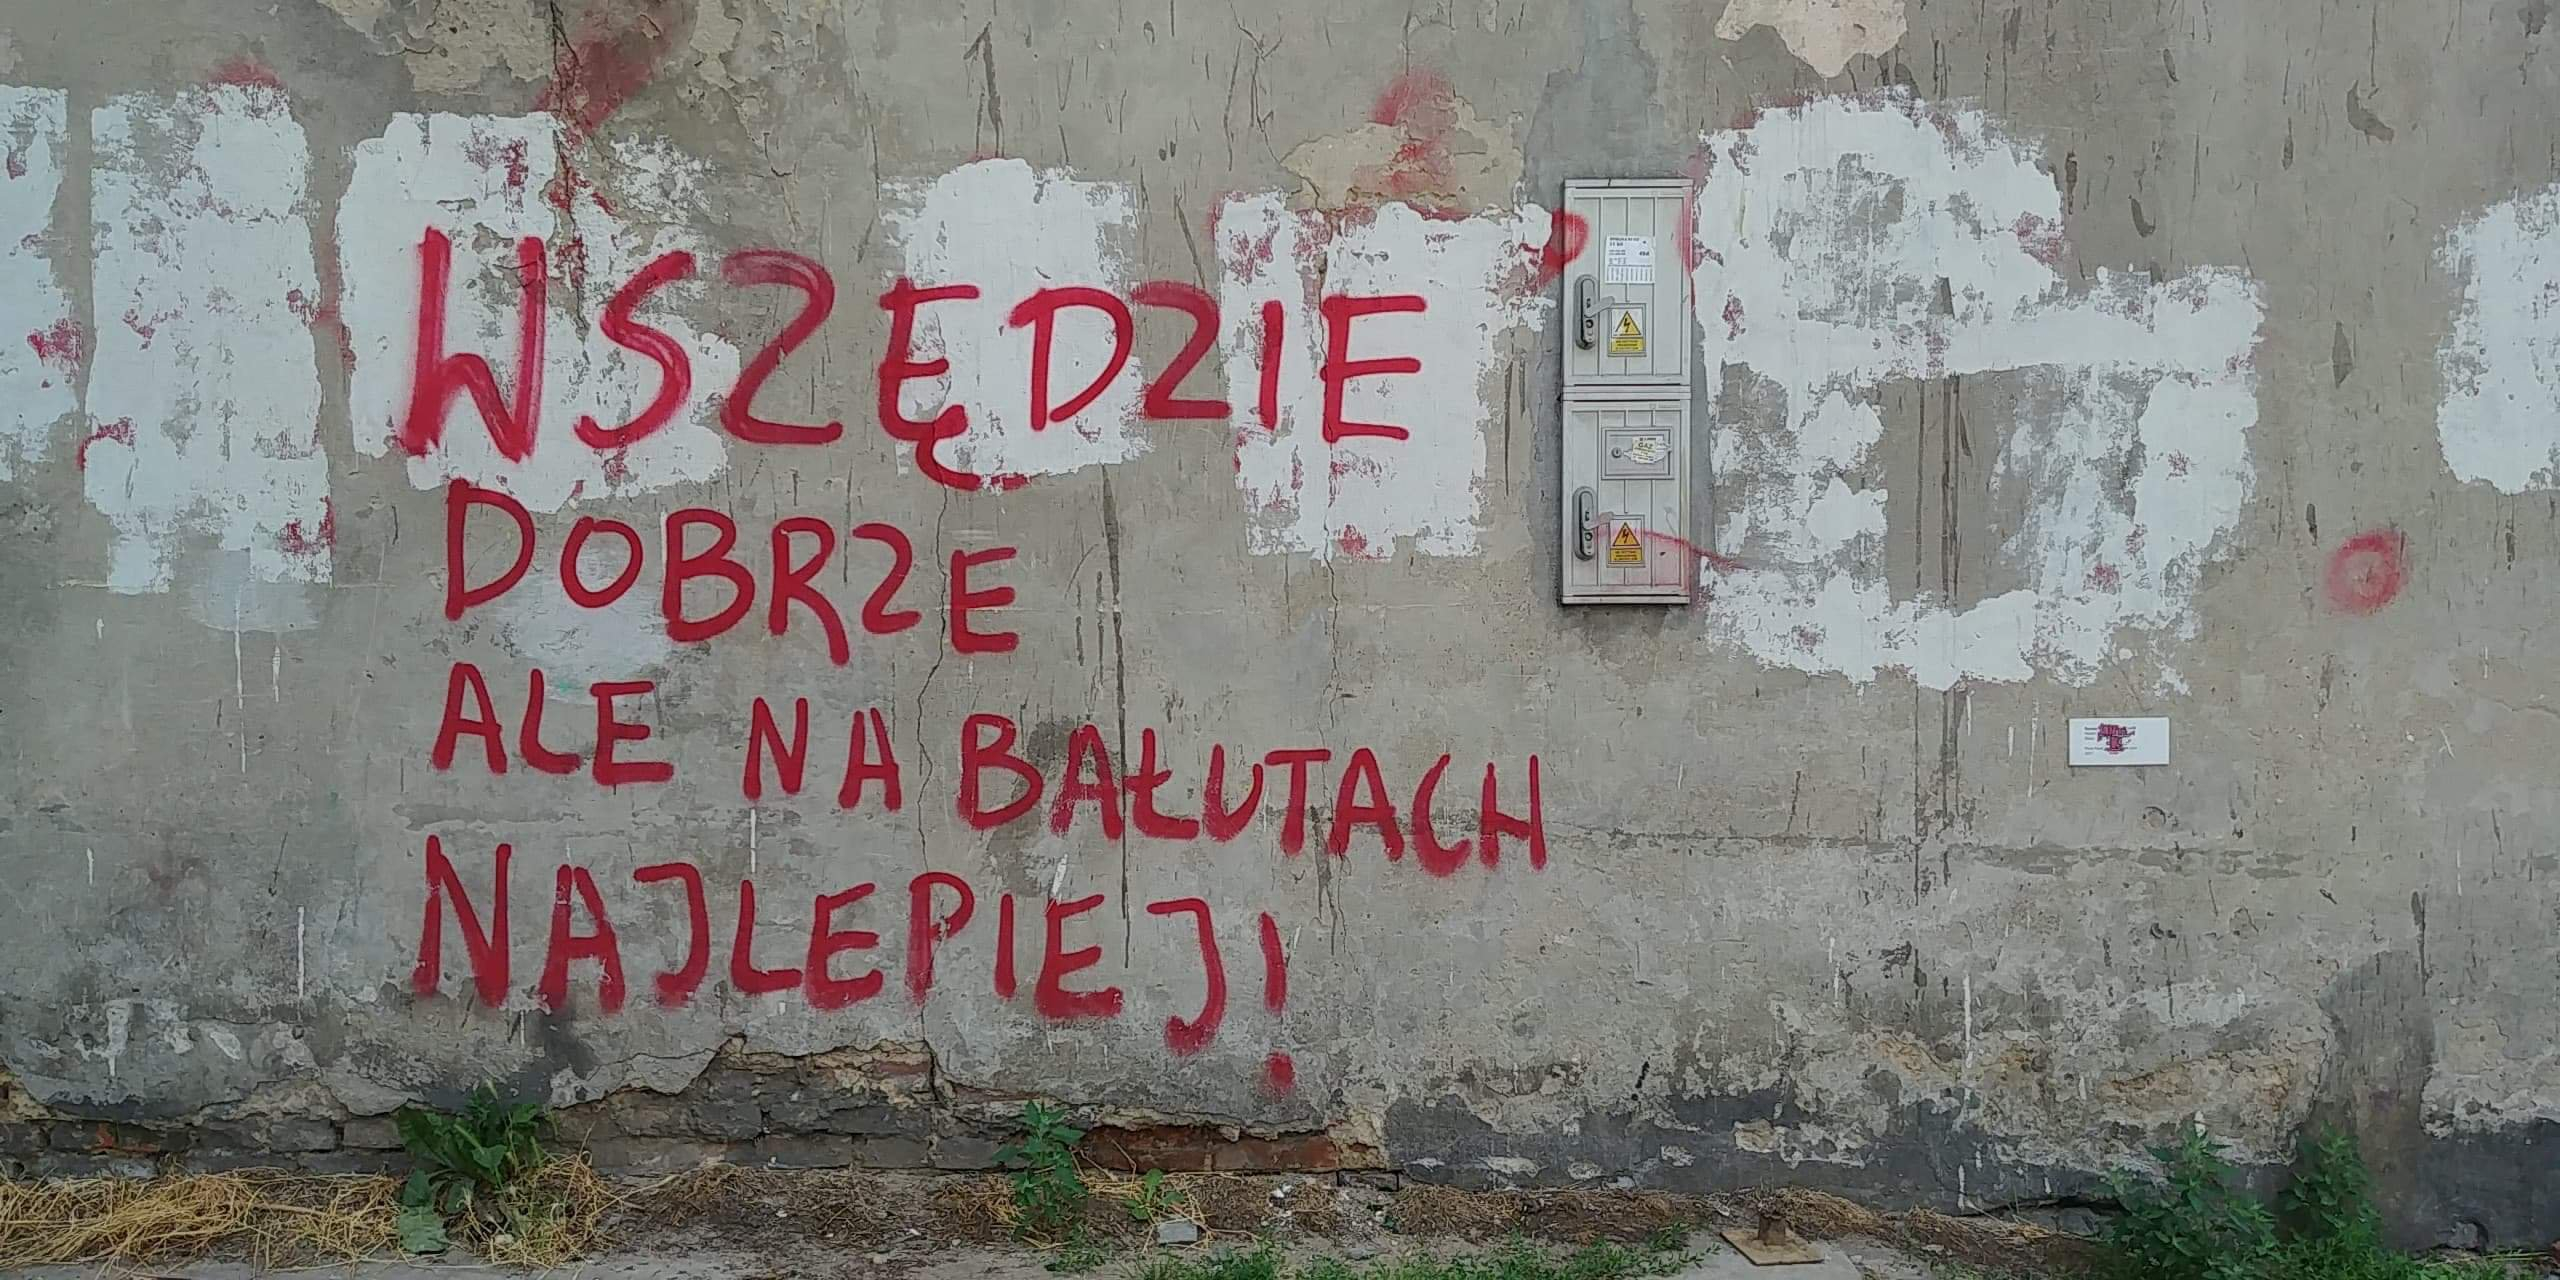 WSZĘDZIE
DOBRZE
ALE NA BAŁUTACH
NAJLEPIEJ!
GAZ